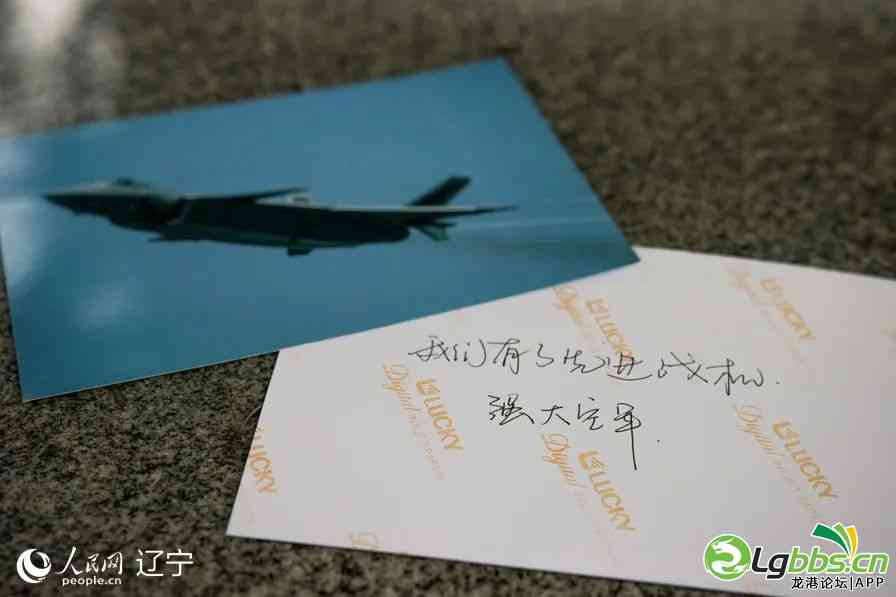 我们有了先进战机.
强大空军.
LUCKY
LUCKY
Digital
LUCKY
Digital
LUCKY
Digital
LUCKY
LUCKY
Digital
人民网 辽宁
people.cn
Lgbbs.cn
龙港论坛|APP